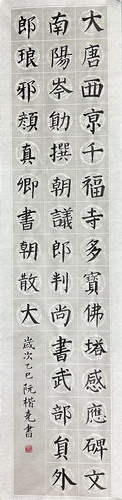 大唐西京千福寺多寶佛塔感應碑文
南陽岑勛撰朝議郎判尚書武部員外
郎琅邪顏真卿書朝散大
歲次乙巳阮楷書